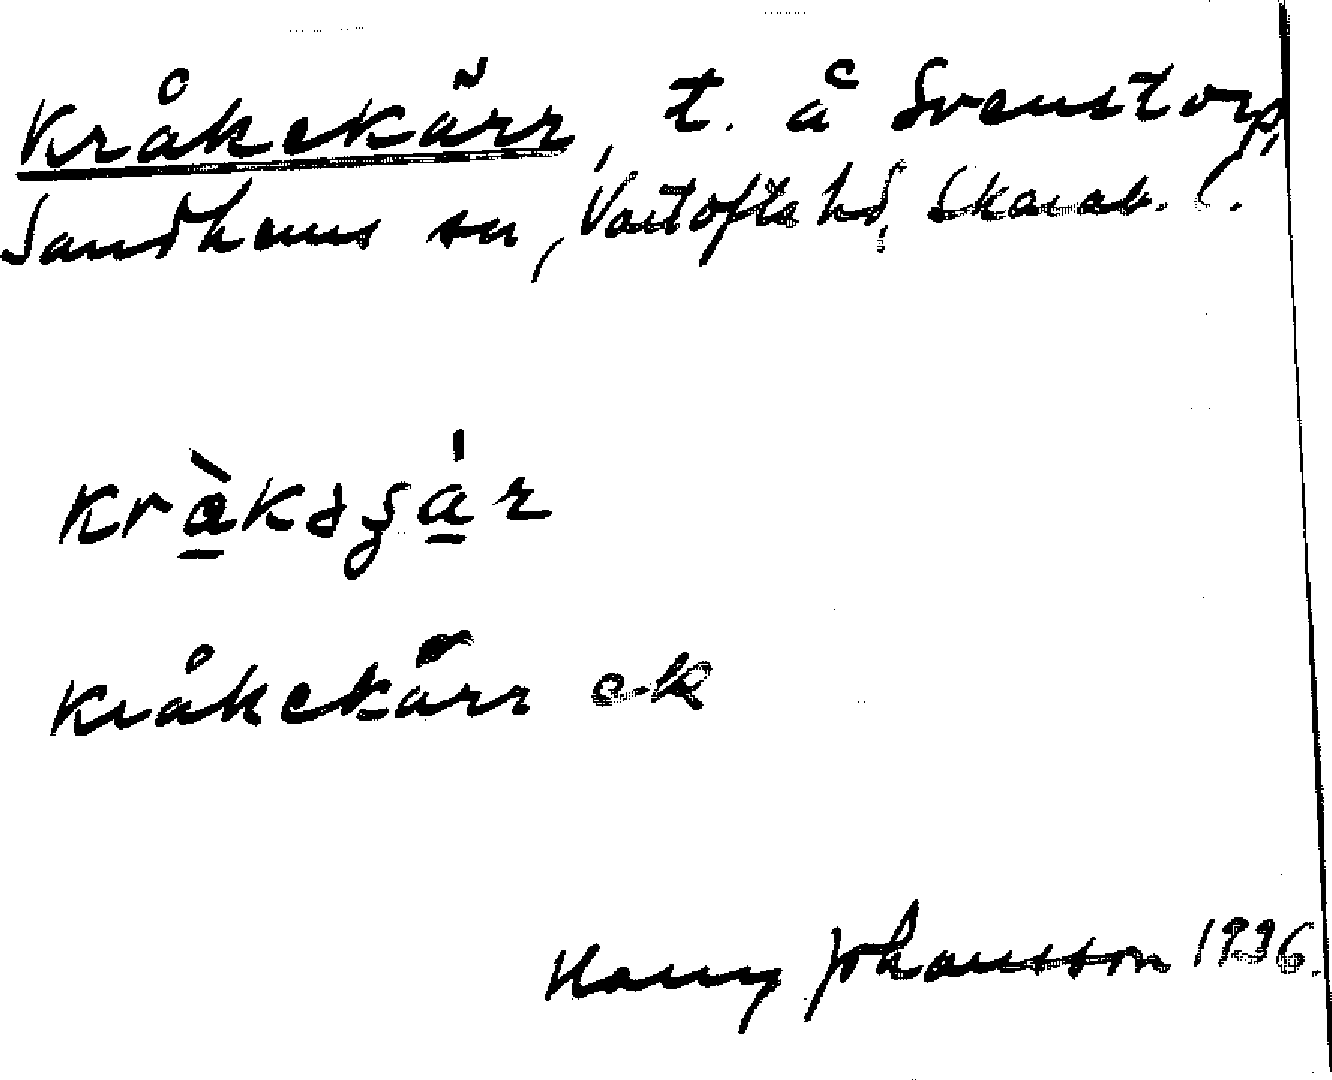 Kråkekärr, t. å Svenstorp,
Sandhems sn, Vartofta hd, Skarab. l.
Kråkekärr ek
Harry Johansson 1936.